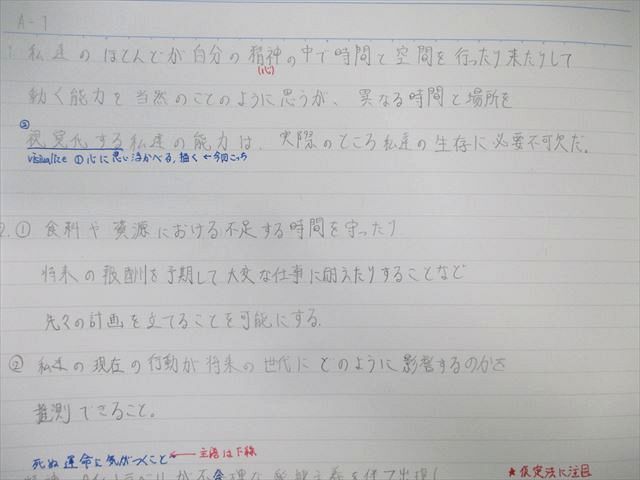 A-1
1. 私達のほとんどが自分の精神の中で時間と空間を行ったり来たりして
(心)
動く能力を当然のことのように思うが、異なる時間と場所を
②
視覚化する私達の能力は、実際のところ私達の生存に必要不可欠だ。
visualize ①心に思い浮かべる,描く ←今回こっち
2. ①食料や資源における不足する時間を守ったり
将来の報酬を予期して大変な仕事に耐えたりすることなど
先々の計画を立てることを可能にする.
② 私達の現在の行動が将来の世代にどのように影響するのかを
推測できること。
死ぬ運命に気がつくこと ← 主語は下線
★仮定法に注目